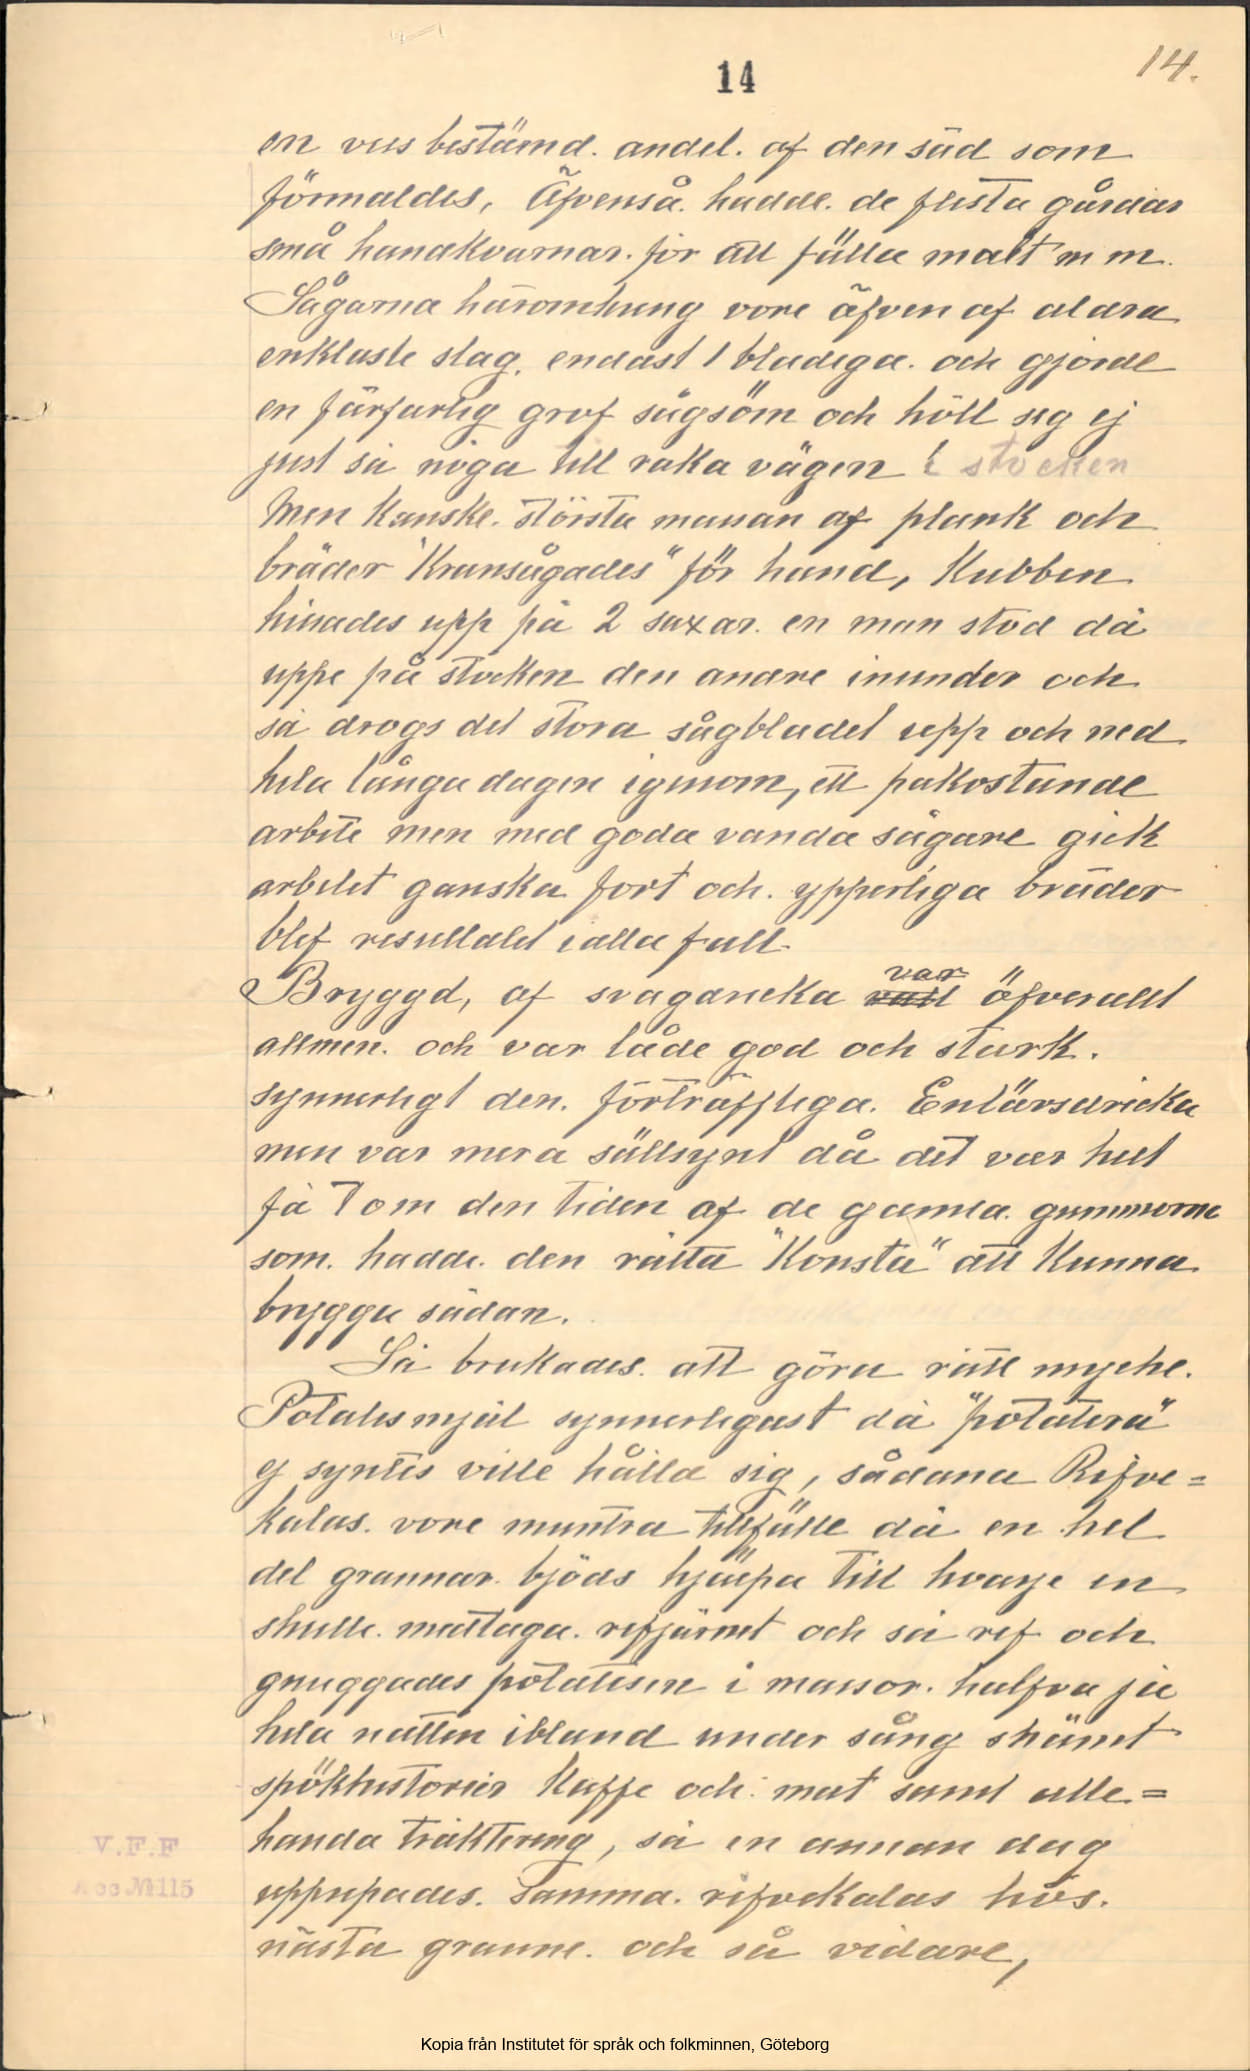 14
14.
en viss bestämd. andel. af den säd som
förmaldes, Äfvenså. hadde. de flesta gårdar
små handkvarnar. för att fälla malt m m.
Sågarna häromkring vore äfven af aldra
enklaste slag. endast 1 bladiga. och gjorde
en färfarlig grof sågsöm och höll sig ej
just så noga till raka vägen i stocken
Men kanske. största massan af plank och
bräder "Kransågades" för hand, Kubben
hissades upp på 2 saxar. en man stod då
uppe på stocken den andre inunder och
så drogs det stora sågbladet upp och ned
hela långa dagen igenom, ett påkostande
arbete men med goda vanda sågare gick
arbetet ganska fort och. ypperliga bräder
blef resultatet i alla fall.
Bryggd, af svagdricka var öfverallt
allmen. och var både god och stark.
synnerligt den. förträffliga. Enbärsdricka
men var mera sällsynt då det var helt
få 7 om den tiden af de gamla. gummorna
som. hadde. den rätta "Konsta" att kunna
brygga sådan.
Så brukades. att göra rätt mycke.
Potatismjäl synnerligast då "potatera"
ej syntes ville hålla sig, sådana Rifve=
kalas. vore muntra tillfälle då en hel
del grannar. bjöds hjälpa till hvarje en
skulle. medtaga. refjärnet och så ref och
gnuggades potatisen i massor. halfva ja
hela natten ibland under sång skämt
spökhistorier Kaffe och. mat samt alle=
handa traktering, så en annan dag
upprepades. samma. rifvekalas hos.
nästa granne. och så vidare,
V.F.F
Acc. № 115
Kopia från Institutet för språk och folkminnen, Göteborg